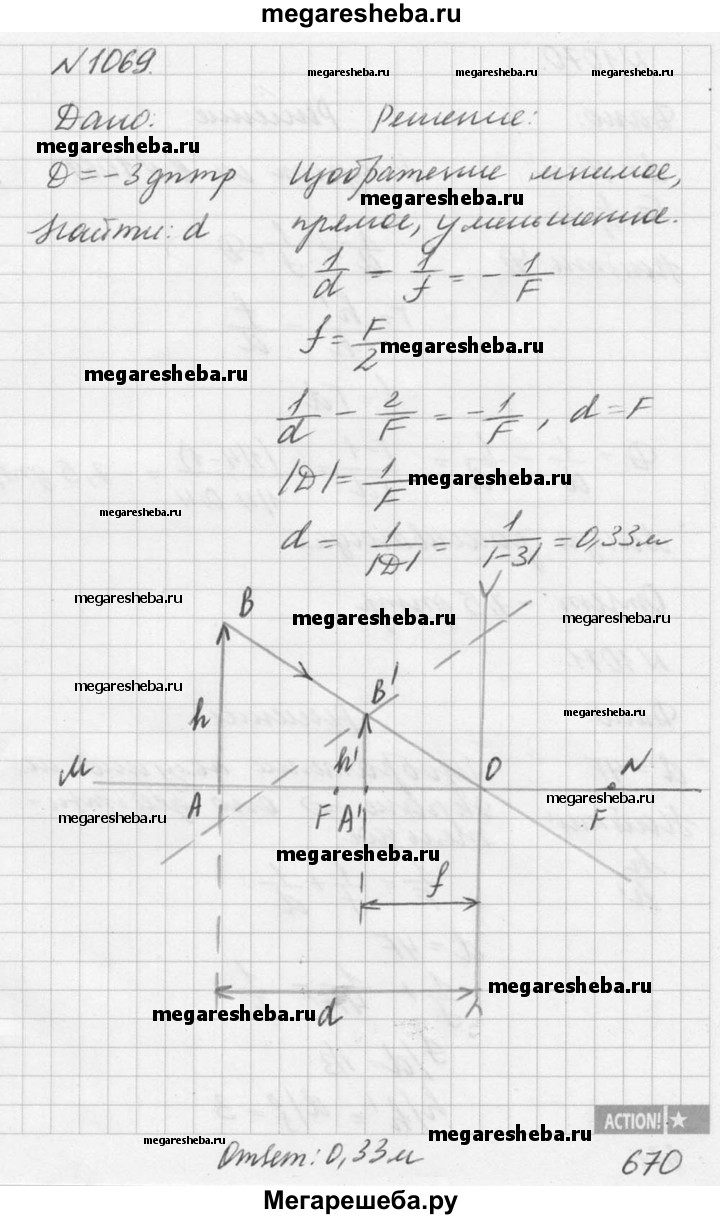 megaresheba.ru
N 1069.
megaresheba.ru megaresheba.ru megaresheba.ru
Дано: Решение:
megaresheba.ru
D = -3 дптр Изображение мнимое,
megaresheba.ru
Найти: d прямое, уменьшенное.
1/d - 1/f = - 1/F
f = F/2
megaresheba.ru
megaresheba.ru
1/d - 2/F = - 1/F , d = F
|D| = 1/F
megaresheba.ru
megaresheba.ru
d = 1/|D| = 1/|-3| = 0,33 м
megaresheba.ru
B
megaresheba.ru
megaresheba.ru
megaresheba.ru
B'
h
megaresheba.ru
M h' O N
megaresheba.ru
A F A' F
megaresheba.ru
megaresheba.ru
f
megaresheba.ru
megaresheba.ru
d
ACTION!
megaresheba.ru
megaresheba.ru
Ответ: 0,33 м
670
Мегарешеба.ру